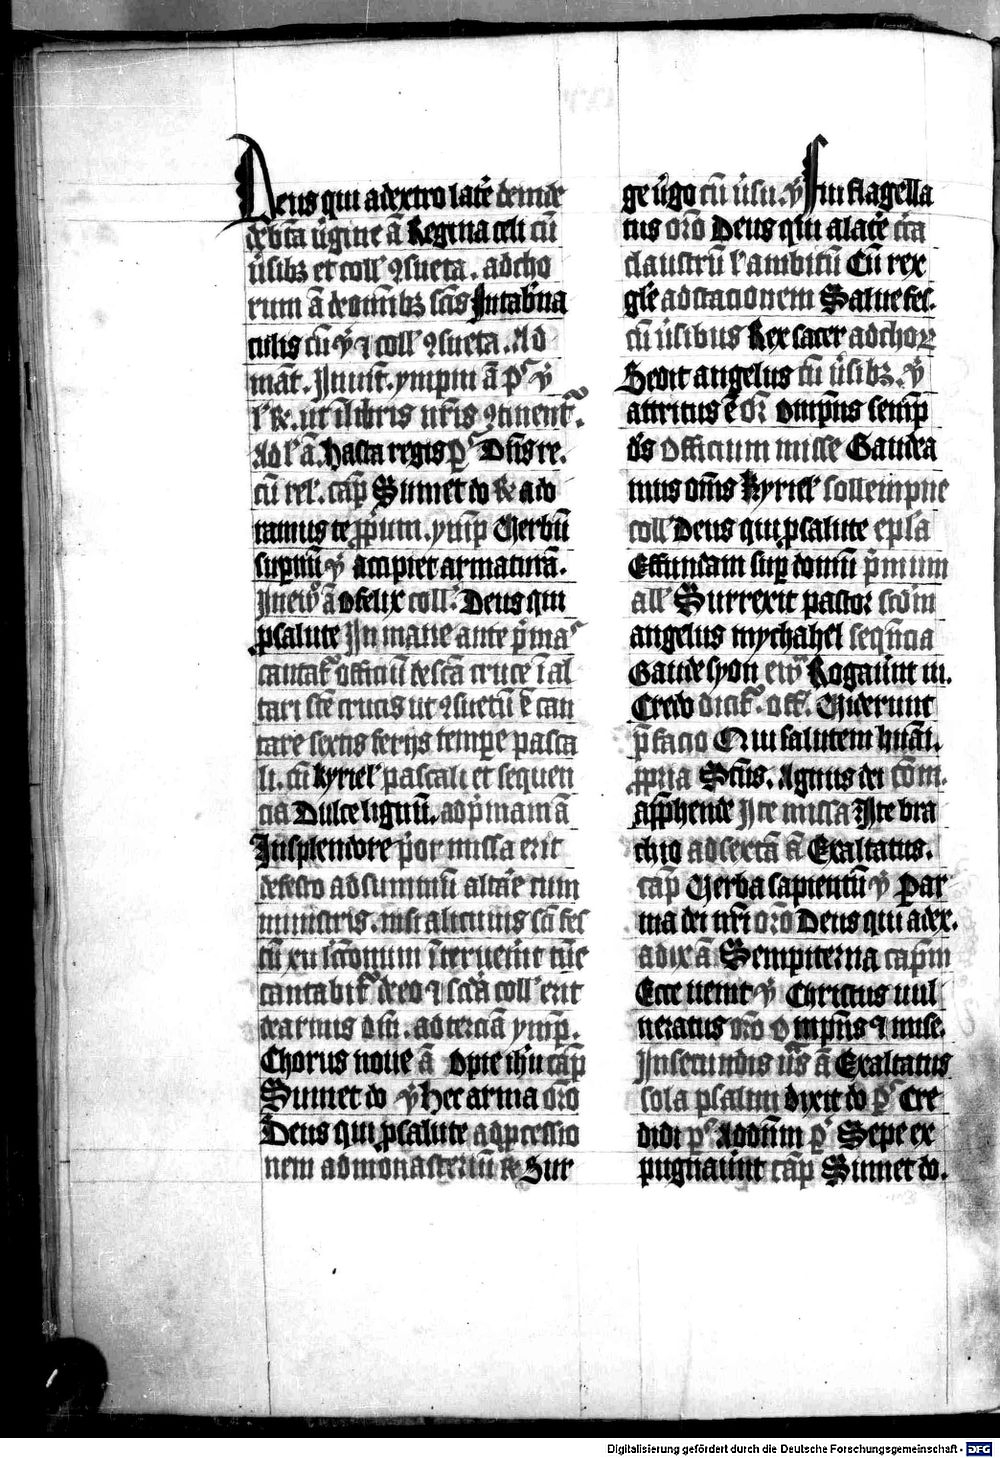 Deus qui adextro late᷑ deinde
de bt̄a ỽgine a᷑ Regina celi cū
ỽsibꝫ et coll' ꝯsueta . adcho
rum a᷑ deom̄ibꝫ sc̄is Intab̓na
culis cū ỽ ⁊ coll' ꝯsueta . Ad
mat̄. Inuit̄. ympm̄ a᷑ p̄s ỽ
l' R̄. ut ī libris nr̄is ꝯtinent᷑.
Ad l' a᷑. hasta regis p̄s Dn̄s re.
cū rel'. cap̄ Sumet do R̄ ado
ramus te ꝓpium . ymp̄ Verbū
supnū ỽ accipiet armaturā .
In ew̄ a᷑ O felix coll'. Deus qui
ꝓ salute In mane ante p̄ma᷑
cantat᷑ officiū de sc̄a cruce ī al
tari sc̄e crucis ut ꝯsuetū ē can
tare sextis ferijs tempe pasca
li . cū kyriel' pascali et sequen
cia Dulce lignū . ad p̄mam a᷑
Insplendore p̓or missa erit
defesto ad summū altare cum
ministris . nisi alicuius sc̄i fes
cū xij lc̄onum īteruen̄it tūc
cantabit᷑ de eo ⁊ sc̄da coll' erit
dearmis dn̄i . ad terciā ymp̄ .
Chorus noue a᷑ O pie ihū cap̄
Sumet do ỽ hec arma or̄o
Deus qui ꝓ salute ad pcessio
nem ad monasteriū R̄ Sur
ge ỽgo cū ỽsu . ỽ Fui flagella
tus or̄o Deus qui a late᷑ cīta
claustrū l' ambitū Cū rex
gl'e ad stacionem Salue fes.
cū ỽsibus Rex sacer ad choꝝ
Sedit angelus cū ỽsibꝫ . ỽ
attritus ē or̄ Omp̄ns semp̄
ds̄ Officium misse Gaudea
mus om̄s kyriel' sollempne
coll' Deus qui ꝓ salute epl̄a
Effundam sup domū p̄mum
all' Surrexit pastor scd̄m
angelus mychahel seqn̄cia
Gaude syon ew̄ Rogauer̄nt iii.
Credo dicit᷑ . off'. Viderunt
p̄facio Qui salutem humāi .
ꝓpria Sc̄us . Agnus dei com̄.
app̄hende Ite missa Ite bra
chio ad sextā a᷑ Exaltatus .
cap̄ Verba sapientiū ỽ Par
ma dei nr̄i or̄o Deus qui adex.
ad ix a᷑ Sempiterna capm̄
Ecce uenit ỽ Christus uul
neratus or̄o Omp̄ns ⁊ mise .
In secundis ūs a᷑ Exaltatus
sola psalmi dixit do p̄s Cre
didi p̄s Ad dn̄m p̄s Sepe ex
pugnauer̄nt cap̄ Sumet do .
Digitalisierung gefördert durch die Deutsche Forschungsgemeinschaft - DFG